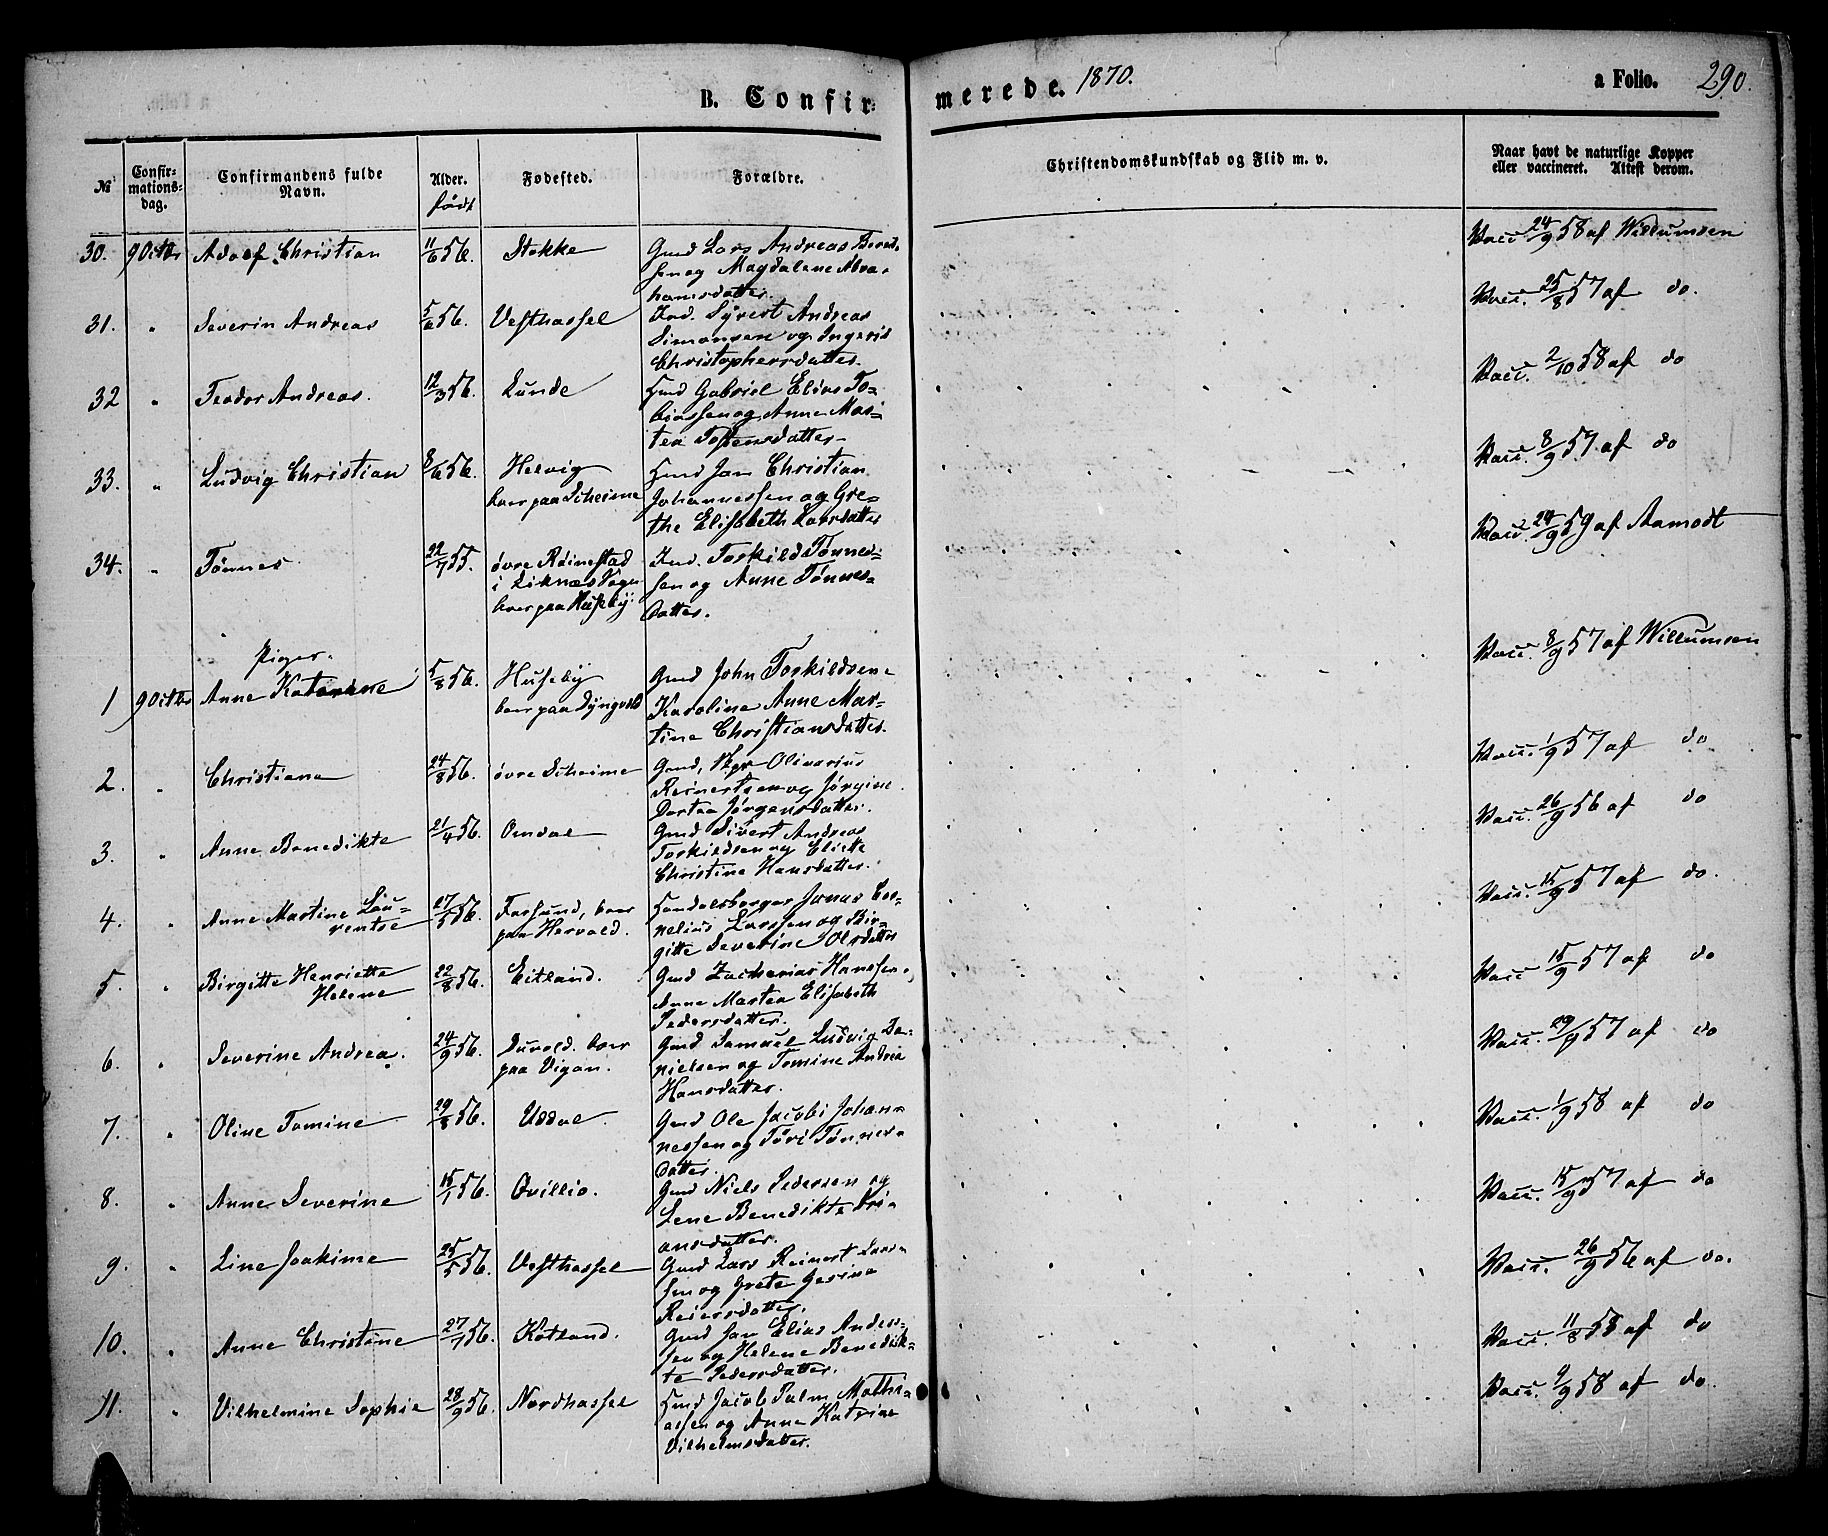 B. Confirmerede. 1870. a Folio. 290.
No Confirmationsdag. Confirmandens fulde Navn. Alder. født Fødested. Forældre. Christendomskundskab og Flid m. v. Naar havt de naturlige Kopper eller vaccineret. Attest derom.
30. 9 Octbr Adolf Christian 11/6 56. Stokke Gmd Lars Andreas Bernd-
sen og Magdalene Abra-
hamsdatter. Vacc. 24/9 58 af Willumsen
31. " Severin Andreas 5/6 56. Vesthassel Ind. Syvert Andreas
Simonsen og Ingerid
Christophersdatter. Vacc. 25/8 57 af do.
32 " Teodor Andreas. 12/3 56. Lunde Hmd Gabriel Elias To-
biassen og Anne Mar-
tea Tostensdatter. Vacc. 2/10 58 af do
33. " Ludvig Christian 8/6 56. Helvig
boer paa Skeime Hmd Jan Christian
Johannessen og Gre-
the Elisabeth Larsdatter Vacc. 8/9 57 af do
34. " Tønnes 22/7 55. øvre Røinestad
i Liknæs Sogn
boer paa Huseby. Ind. Torkild Tønnes-
sen og Anne Tønnes-
datter. Vacc. 24/9 59 af Aamodt
Piger.
1 9 Octbr Anne Katarine 5/8 56. Huseby
boer paa Dyngvold Gmd John Torkildsen
Karoline Anne Mar-
tine Christiansdatter. Vacc. 8/9 57 af Willumsen
2. " Christiane 24/8 56. øvre Skeime Gmd, Olivarius
Reinertsen og Jørgine
Dortea Jørgensdatter. Vacc. 1/9 57 af do
3. " Anne Benedikte 21/4 56. Omdal Gmd Sivert Andreas
Torkildsen og Eliette
Christine Hansdatter. Vacc. 26/9 56 af do
4. " Anne Martine Lau-
rentse 27/5 56. Farsund, boer
paa Hervold. Handelsborger Jonas Cor-
nelius Larssen og Bir-
gitte Severine Olsdatter Vacc. 15/9 57 af do.
5. " Birgitte Henriette
Helene 22/8 56. Eitland. Gmd Zacharias Hanssen,
Anne Martea Elisabeth
Pedersdatter. Vacc 15/9 57 af do
6. " Severine Andrea. 24/9 56. Duvold. boer
paa Vigan. Gmd Samuel Ludvig Da-
nielsen og Tomine Andrea
Hansdatter. Vacc. 29/9 57 af do
7. " Oline Tomine 29/8 56. Uddal. Gmd Ole Jacobi Johan-
nessen og Tøri Tønnes-
datter. Vacc. 1/9 58 af do
8. " Anne Severine 15/1 56. Ovillio. Gmd Niels Pedersen og
Lene Benedikte Kri-
ansdatter. Vacc. 15/9 57 af do
9. " Line Joakime 25/5 56. Vesthassel Gmd Lars Reinert Lars-
sen og Grete Gesine
Reiersdatter. Vacc. 26/9 56 af do.
10. " Anne Christine 27/7 56. Kotland. Gmd Jan Elias Anders-
sen og Helene Benedik-
te Pedersdatter. Vacc. 11/8 58 af do
11. " Vilhelmine Sophie 28/9 56. Nordhassel Hmd Jacob Palm Mathi-
assen og Anne Katrine
Vilhelmsdatter. Vacc. 9/9 58 af do.